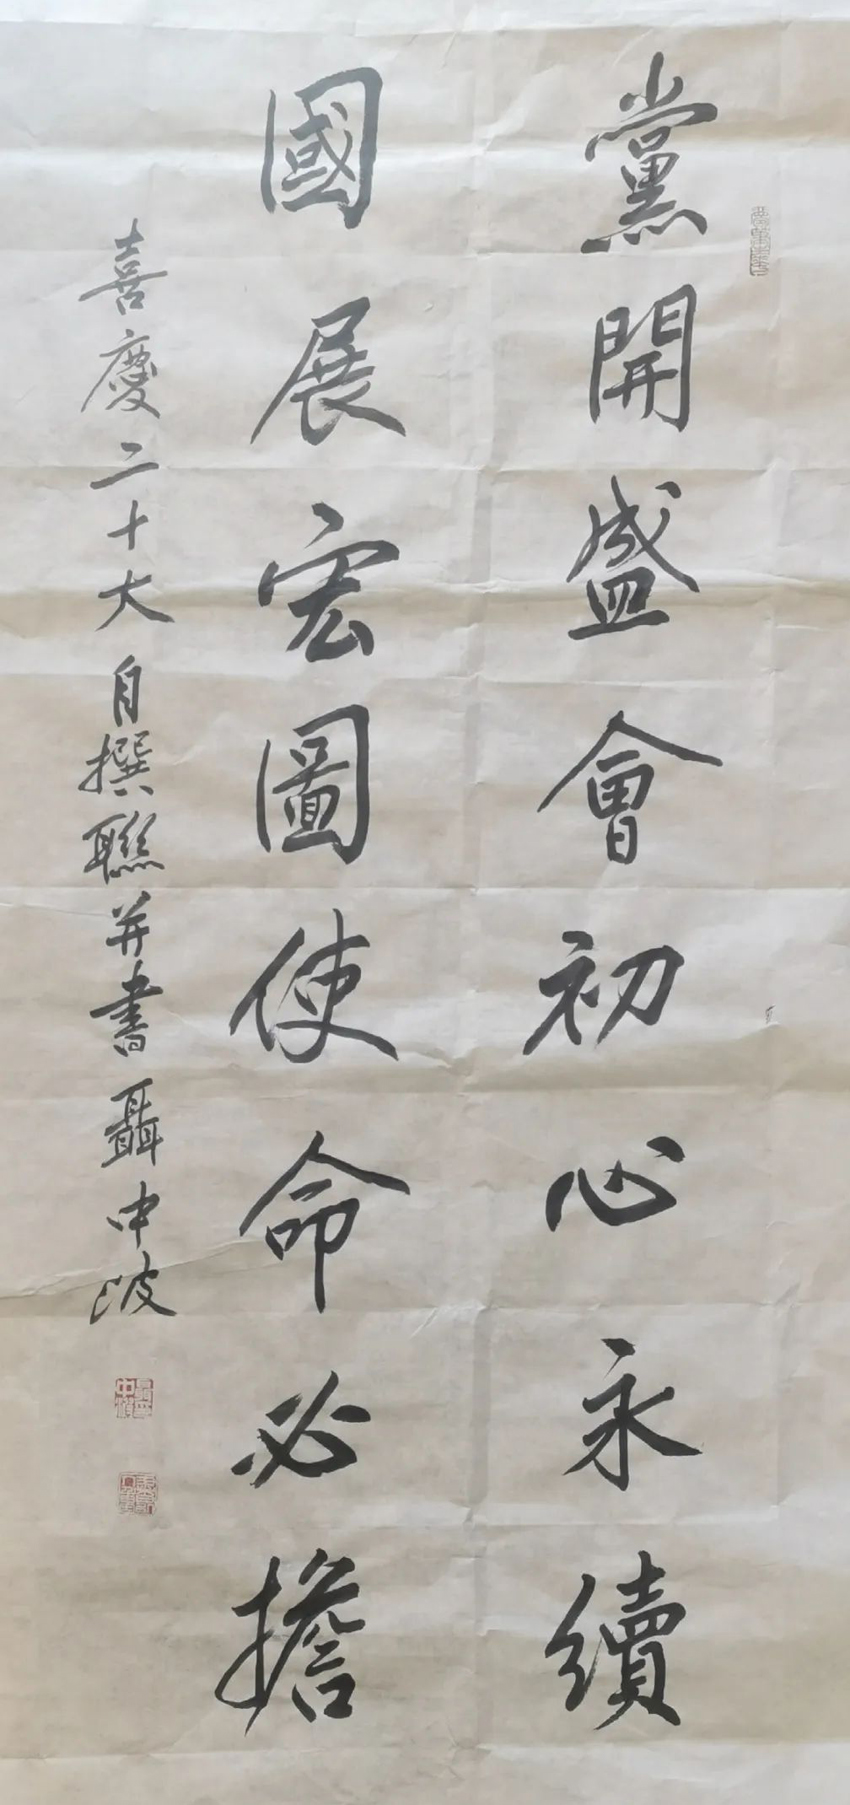 黨開盛會初心永續
國展宏圖使命必擔
喜慶二十大自撰聯并書聶中波